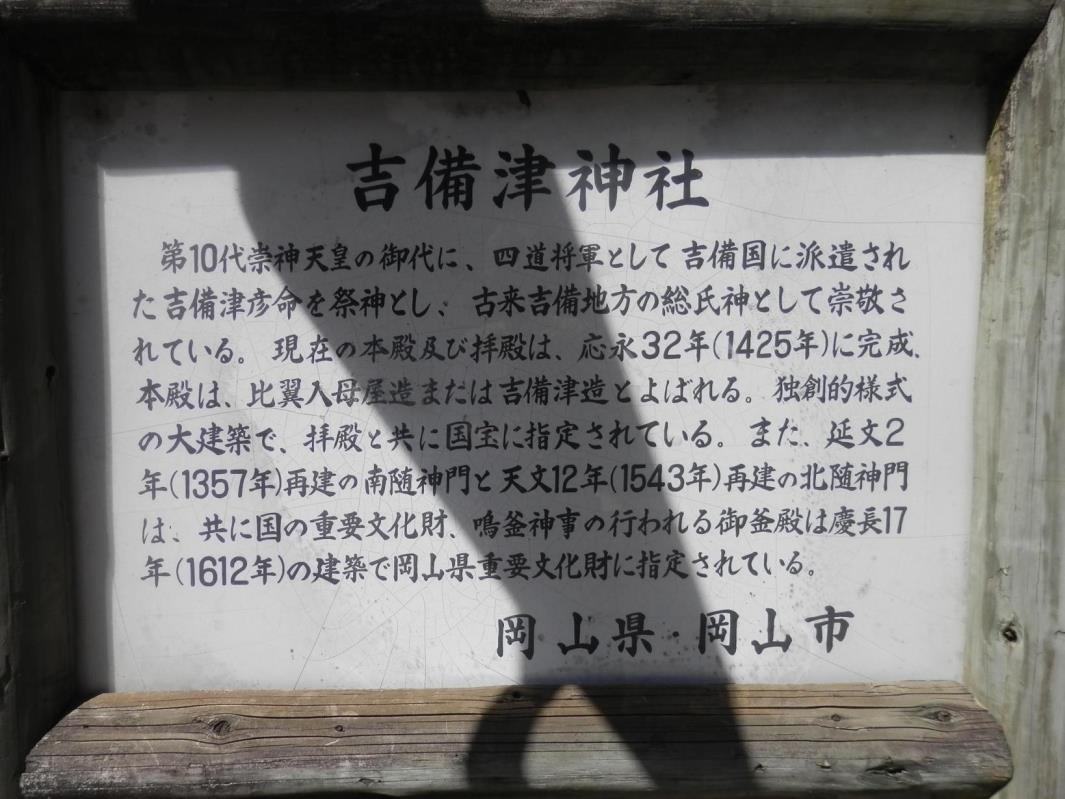 吉備津神社
第10代崇神天皇の御代に、四道将軍として吉備国に派遣され
た吉備津彦命を祭神とし、古来吉備地方の総氏神として崇敬さ
れている。現在の本殿及び拝殿は、応永32年(1425年)に完成、
本殿は、比翼入母屋造または吉備津造とよばれる。独創的様式
の大建築で、拝殿と共に国宝に指定されている。また、延文2
年(1357年)再建の南随神門と天文12年(1543年)再建の北随神門
は、共に国の重要文化財、鳴釜神事の行われる御釜殿は慶長17
年(1612年)の建築で岡山県重要文化財に指定されている。
岡山県・岡山市